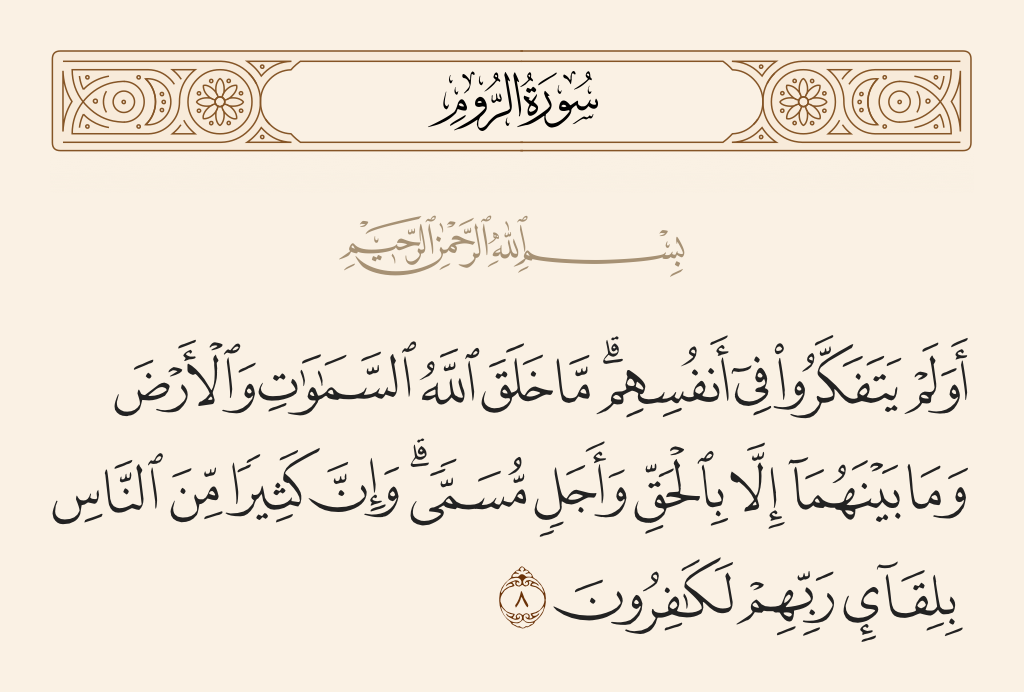 سُورَةُ الرُّومِ
بِسْمِ ٱللَّهِ ٱلرَّحْمَٰنِ ٱلرَّحِيمِ
أَوَلَمْ يَتَفَكَّرُوا۟ فِىٓ أَنفُسِهِم ۗ مَّا خَلَقَ ٱللَّهُ ٱلسَّمَٰوَٰتِ وَٱلْأَرْضَ
وَمَا بَيْنَهُمَآ إِلَّا بِٱلْحَقِّ وَأَجَلٍ مُّسَمًّى ۗ وَإِنَّ كَثِيرًا مِّنَ ٱلنَّاسِ
بِلِقَآئِ رَبِّهِمْ لَكَٰفِرُونَ ٨